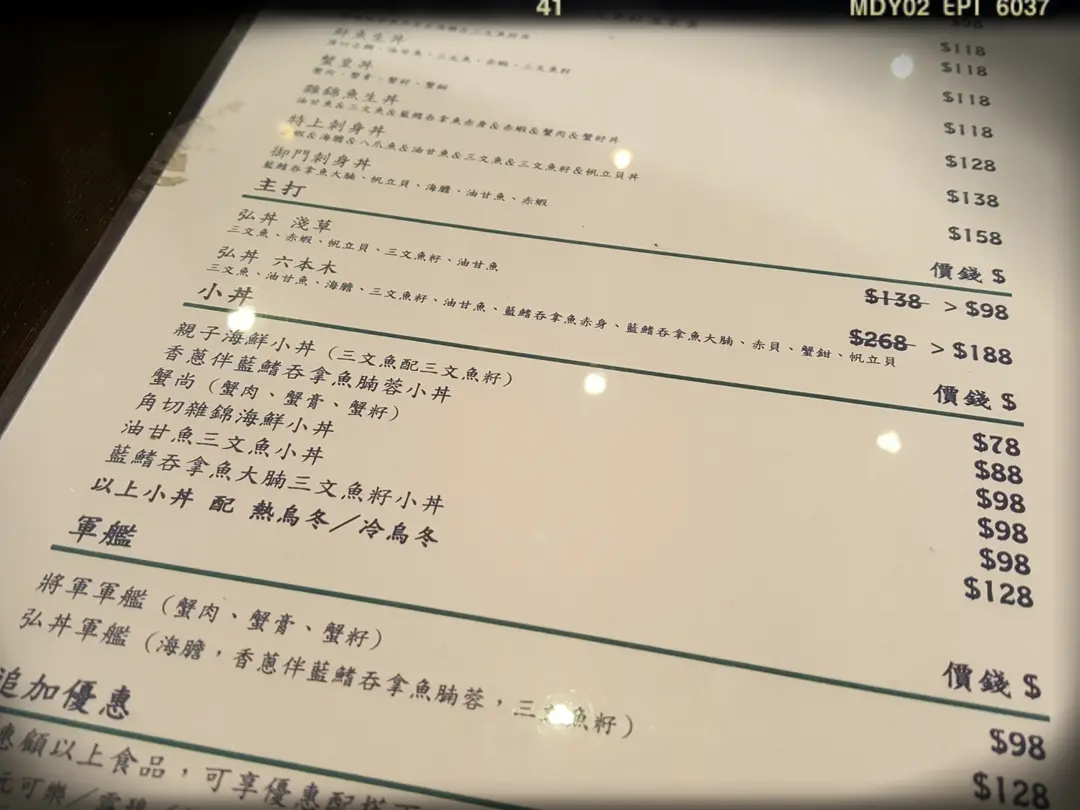 41 MDY02 EPT 6037
$98
魚生丼 $118
油甘魚、三文魚、赤蝦、三文魚籽 $118
蟹皇丼 $118
蟹肉、蟹膏、蟹籽、蟹
雜錦魚生丼 $118
油甘魚&三文魚&藍鰭吞拿魚赤身&赤蝦&蟹肉&蟹籽丼
特上刺身丼 $128
蝦&海膽&八爪魚&油甘魚&三文魚&三文魚籽&帆立貝丼
御門刺身丼 $138
藍鰭吞拿魚大腩、帆立貝、海膽、油甘魚、赤蝦 $158
主打 價錢 $
弘丼 淺草 $138 > $98
三文魚、赤蝦、帆立貝、三文魚籽、油甘魚
弘丼 六本木 $268 > $188
三文魚、油甘魚、海膽、三文魚籽、油甘魚、藍鰭吞拿魚赤身、藍鰭吞拿魚大腩、赤貝、蟹鉗、帆立貝
小丼 價錢 $
親子海鮮小丼（三文魚配三文魚籽） $78
香蔥伴藍鰭吞拿魚腩蓉小丼 $88
蟹尚（蟹肉、蟹膏、蟹籽） $98
角切雜錦海鮮小丼 $98
油甘魚三文魚小丼 $98
藍鰭吞拿魚大腩三文魚籽小丼 $128
以上小丼 配 熱烏冬／冷烏冬
軍艦 價錢 $
將軍軍艦（蟹肉、蟹膏、蟹籽） $98
弘丼軍艦（海膽，香蔥伴藍鰭吞拿魚腩蓉，三文魚籽） $128
追加優惠
惠顧以上食品，可享優惠配搭
元可樂／雪碧